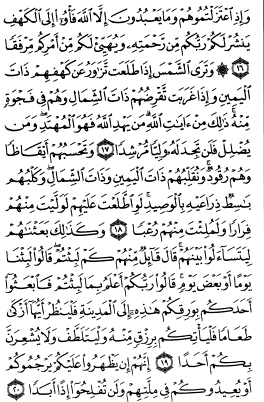 وَإِذِ ٱعۡتَزَلۡتُمُوهُمۡ وَمَا يَعۡبُدُونَ إِلَّا ٱللَّهَ فَأۡوُۥٓاْ إِلَى ٱلۡكَهۡفِ
يَنشُرۡ لَكُمۡ رَبُّكُم مِّن رَّحۡمَتِهِۦ وَيُهَيِّئۡ لَكُم مِّنۡ أَمۡرِكُم مِّرۡفَقٗا
١٦ ۞ وَتَرَى ٱلشَّمۡسَ إِذَا طَلَعَت تَّزَٰوَرُ عَن كَهۡفِهِمۡ ذَاتَ
ٱلۡيَمِينِ وَإِذَا غَرَبَت تَّقۡرِضُهُمۡ ذَاتَ ٱلشِّمَالِ وَهُمۡ فِي فَجۡوَةٖ
مِّنۡهُۚ ذَٰلِكَ مِنۡ ءَايَٰتِ ٱللَّهِۗ مَن يَهۡدِ ٱللَّهُ فَهُوَ ٱلۡمُهۡتَدِۖ وَمَن
يُضۡلِلۡ فَلَن تَجِدَ لَهُۥ وَلِيّٗا مُّرۡشِدٗا ١٧ وَتَحۡسَبُهُمۡ أَيۡقَاظٗا
وَهُمۡ رُقُودٞۚ وَنُقَلِّبُهُمۡ ذَاتَ ٱلۡيَمِينِ وَذَاتَ ٱلشِّمَالِۖ وَكَلۡبُهُم
بَٰسِطٞ ذِرَاعَيۡهِ بِٱلۡوَصِيدِۚ لَوِ ٱطَّلَعۡتَ عَلَيۡهِمۡ لَوَلَّيۡتَ مِنۡهُمۡ
فِرَارٗا وَلَمُلِئۡتَ مِنۡهُمۡ رُعۡبٗا ١٨ وَكَذَٰلِكَ بَعَثۡنَٰهُمۡ
لِيَتَسَآءَلُواْ بَيۡنَهُمۡۚ قَالَ قَآئِلٞ مِّنۡهُمۡ كَمۡ لَبِثۡتُمۡۖ قَالُواْ لَبِثۡنَا
يَوۡمًا أَوۡ بَعۡضَ يَوۡمٖۚ قَالُواْ رَبُّكُمۡ أَعۡلَمُ بِمَا لَبِثۡتُمۡ فَٱبۡعَثُوٓاْ
أَحَدَكُم بِوَرِقِكُمۡ هَٰذِهِۦٓ إِلَى ٱلۡمَدِينَةِ فَلۡيَنظُرۡ أَيُّهَآ أَزۡكَىٰ
طَعَامٗا فَلۡيَأۡتِكُم بِرِزۡقٖ مِّنۡهُ وَلۡيَتَلَطَّفۡ وَلَا يُشۡعِرَنَّ
بِكُمۡ أَحَدًا ١٩ إِنَّهُمۡ إِن يَظۡهَرُواْ عَلَيۡكُمۡ يَرۡجُمُوكُمۡ
أَوۡ يُعِيدُوكُمۡ فِي مِلَّتِهِمۡ وَلَن تُفۡلِحُوٓاْ إِذًا أَبَدٗا ٢٠